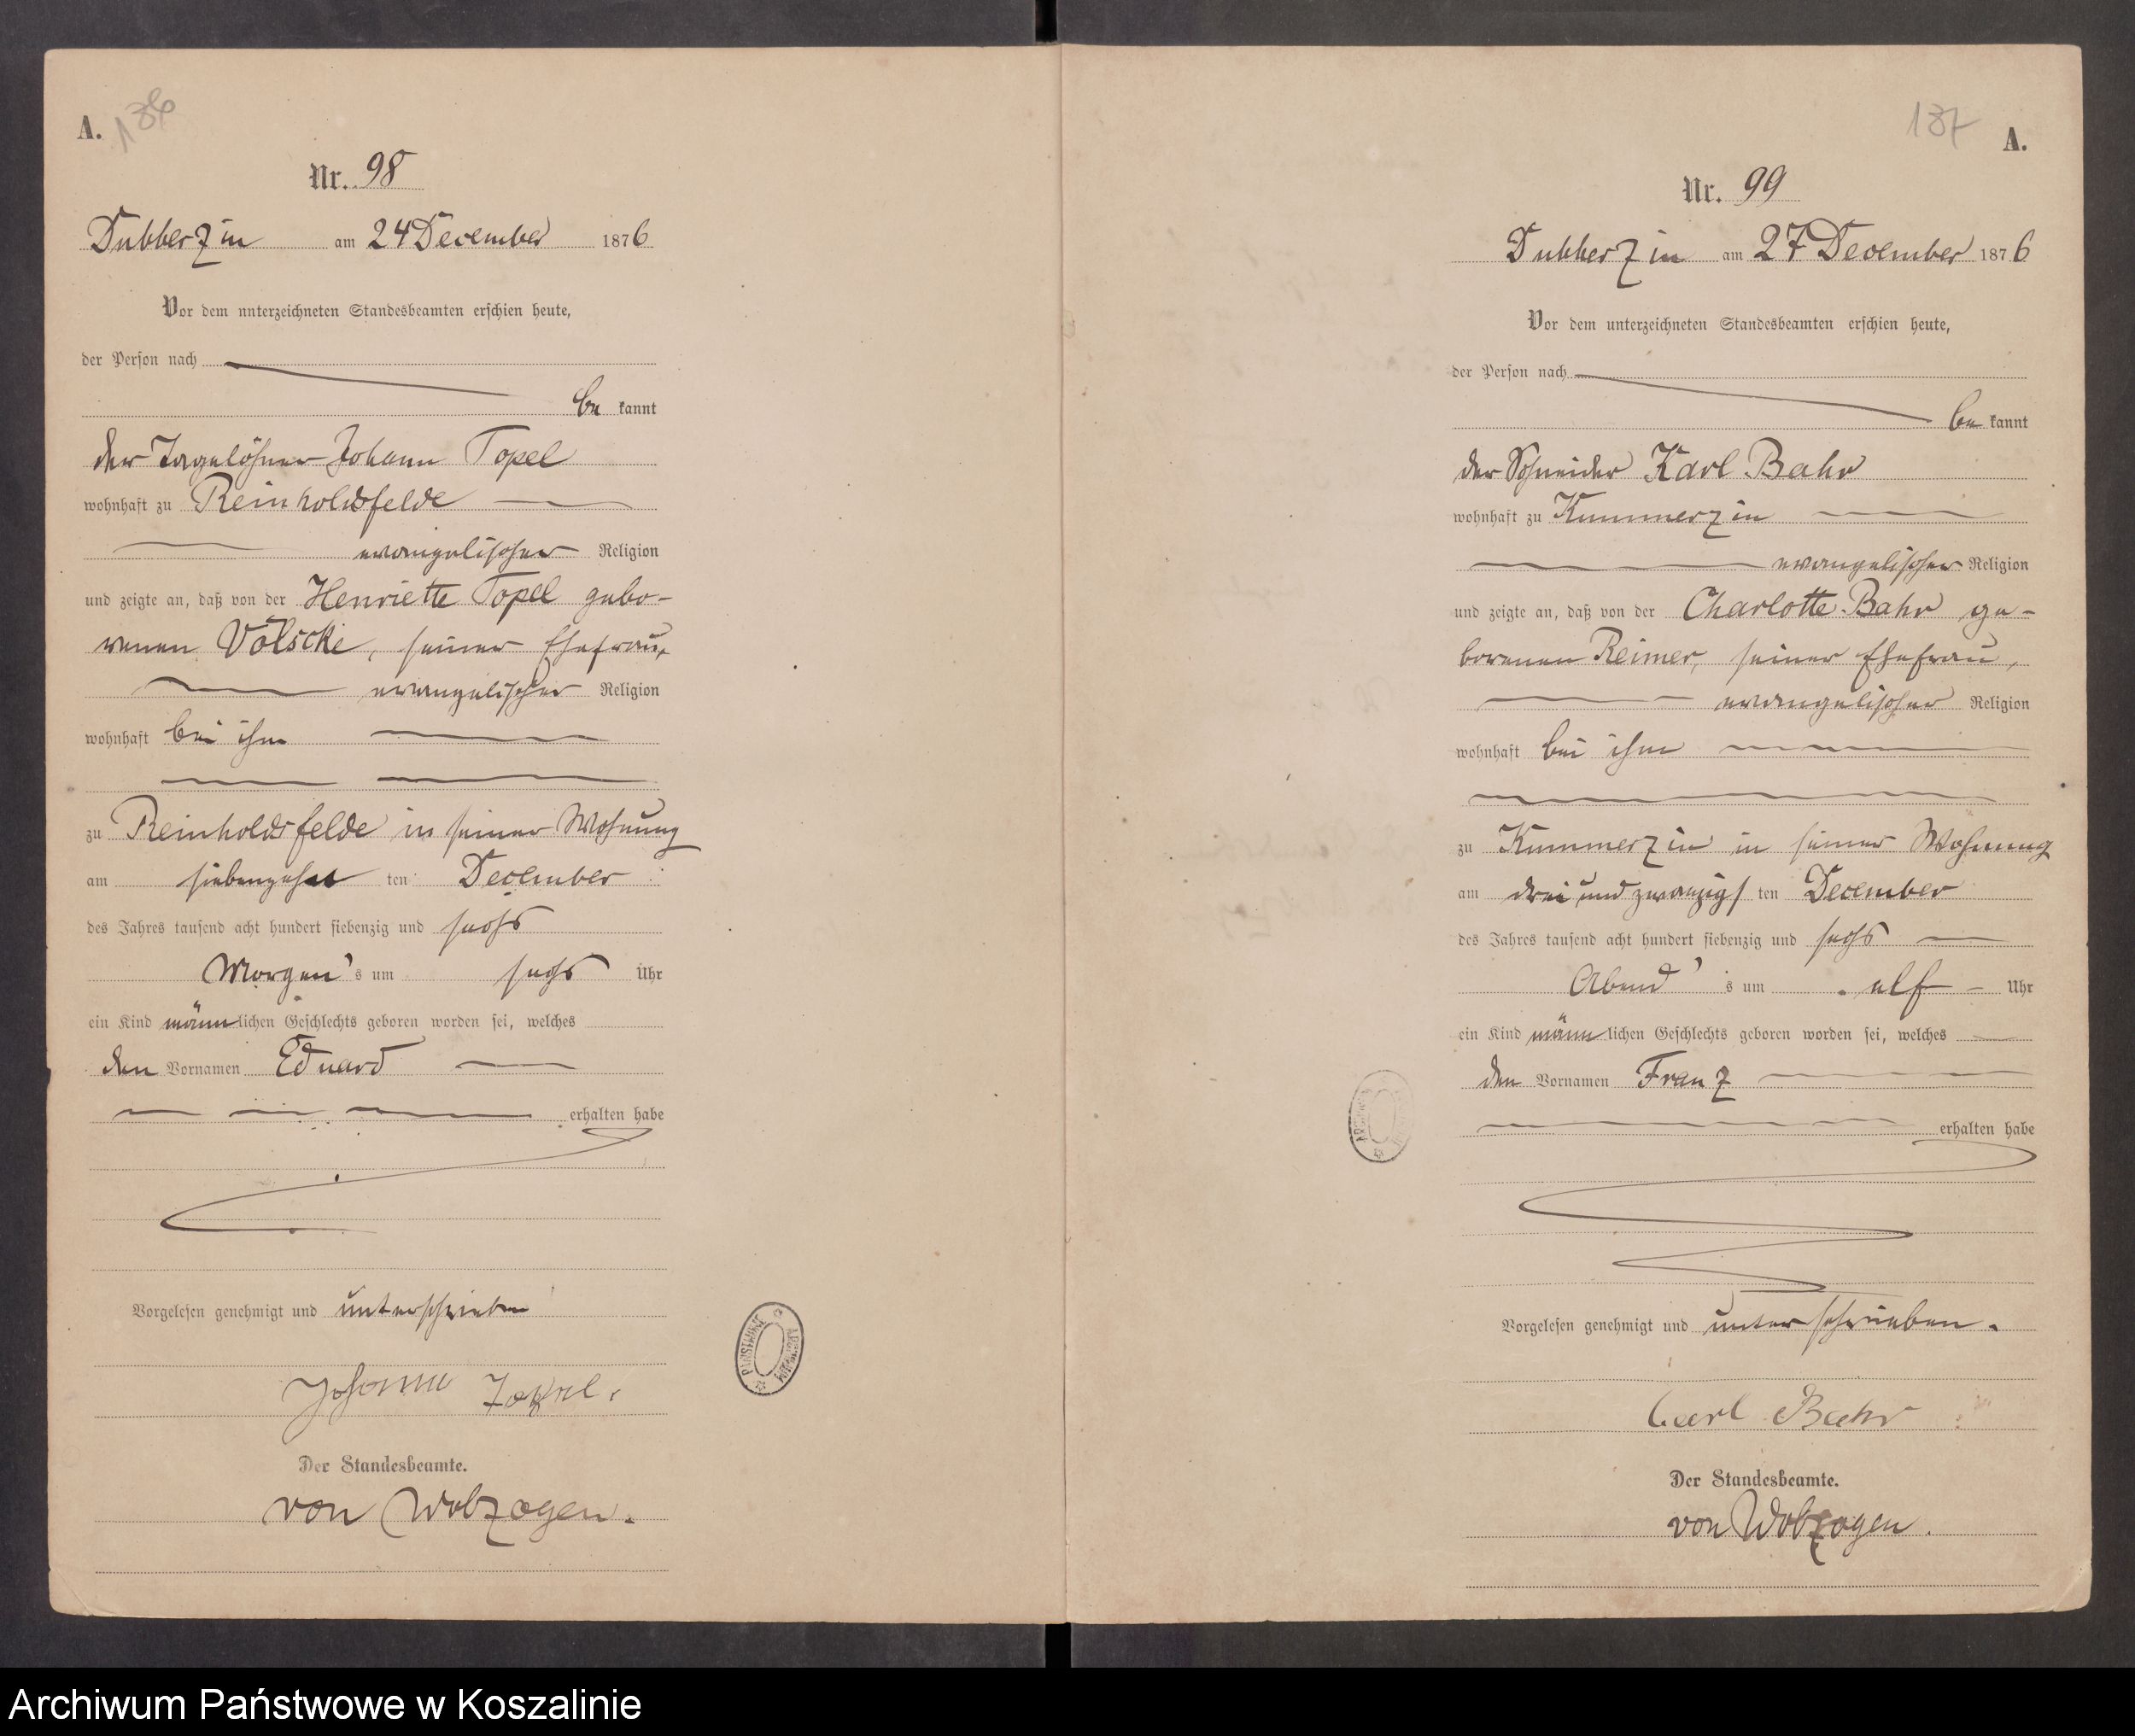 A.
136
Nr. 98
Dubberzin am 24 December 1876
Vor dem unterzeichneten Standesbeamten erschien heute,
der Person nach
be kannt
der Tagelöhner Johann Topel
wohnhaft zu Reinholdsfelde
evangelischer Religion
und zeigte an, daß von der Henriette Topel gebo-
renen Völscke, seiner Ehefrau,
evangelischer Religion
wohnhaft bei ihm
zu Reinholdsfelde in seiner Wohnung
am siebenzehn ten December
des Jahres tausend acht hundert siebenzig und sechs
Morgen's um sechs Uhr
ein Kind männlichen Geschlechts geboren worden sei, welches
den Vornamen Eduard
erhalten habe
Vorgelesen genehmigt und unterschrieben
Johann Topel.
Der Standesbeamte.
von Wolzogen.
ARCHIWUM PAŃSTWOWE
137
A.
Nr. 99
Dubberzin am 27 December 1876
Vor dem unterzeichneten Standesbeamten erschien heute,
der Person nach
be kannt
der Schneider Karl Bahr
wohnhaft zu Kummerzin
evangelischer Religion
und zeigte an, daß von der Charlotte Bahr ge-
borenen Reimer, seiner Ehefrau,
evangelischer Religion
wohnhaft bei ihm
zu Kummerzin in seiner Wohnung
am drei und zwanzigs ten December
des Jahres tausend acht hundert siebenzig und sechs
Abend's um elf Uhr
ein Kind männlichen Geschlechts geboren worden sei, welches
den Vornamen Franz
erhalten habe
Vorgelesen genehmigt und unterschrieben.
Carl Bahr
Der Standesbeamte.
von Wolzogen.
Archiwum Państwowe w Koszalinie